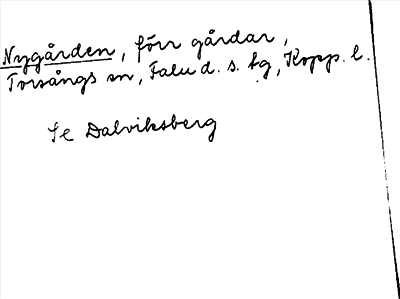 Nygården, förr gårdar,
Torsångs sn, Falu d. s. tg, Kopp. l.
Se Dalviksberg